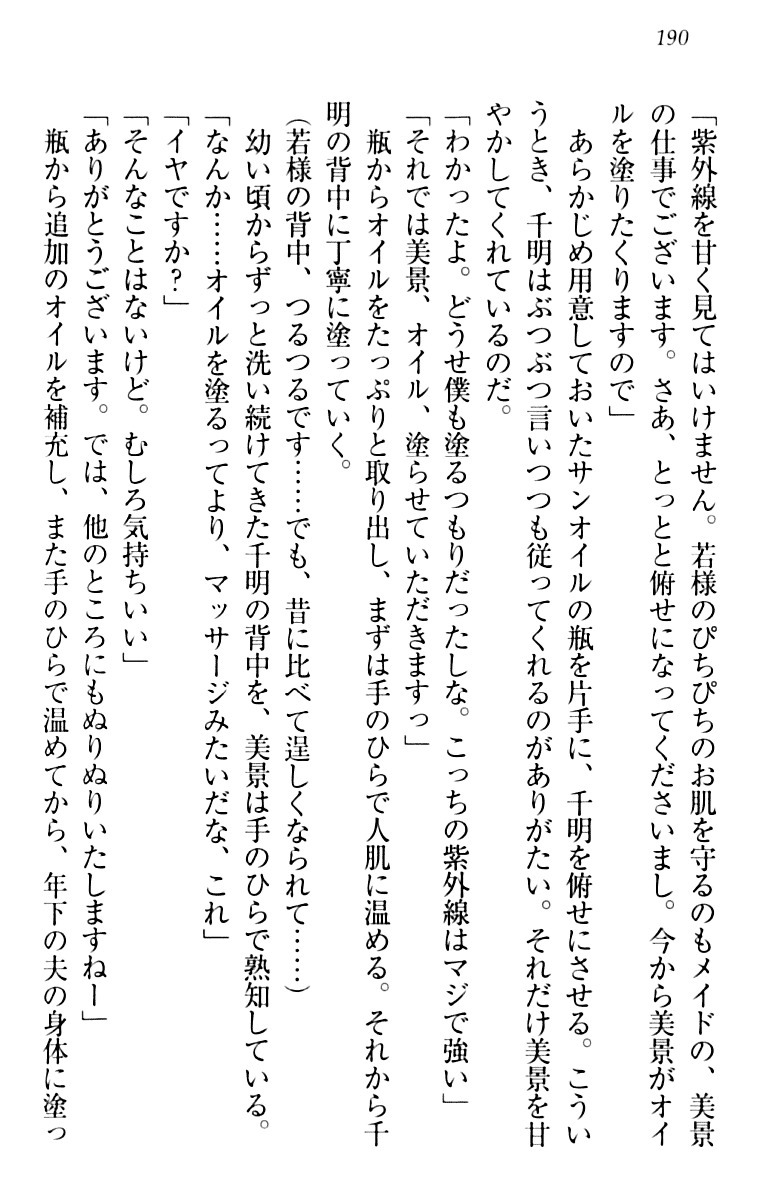 190
「紫外線を甘く見てはいけません。若様のぴちぴちのお肌を守るのもメイドの、美景
の仕事でございます。さあ、とっとと俯せになってくださいまし。今から美景がオイ
ルを塗りたくりますので」
　あらかじめ用意しておいたサンオイルの瓶を片手に、千明を俯せにさせる。こうい
うとき、千明はぶつぶつ言いつつも従ってくれるのがありがたい。それだけ美景を甘
やかしてくれているのだ。
「わかったよ。どうせ僕も塗るつもりだったしな。こっちの紫外線はマジで強い」
「それでは美景、オイル、塗らせていただきますっ」
　瓶からオイルをたっぷりと取り出し、まずは手のひらで人肌に温める。それから千
明の背中に丁寧に塗っていく。
（若様の背中、つるつるです……でも、昔に比べて逞しくなられて……）
　幼い頃からずっと洗い続けてきた千明の背中を、美景は手のひらで熟知している。
「なんか……オイルを塗るってより、マッサージみたいだな、これ」
「イヤですか？」
「そんなことはないけど。むしろ気持ちいい」
「ありがとうございます。では、他のところにもぬりぬりいたしますねー」
　瓶から追加のオイルを補充し、また手のひらで温めてから、年下の夫の身体に塗っ